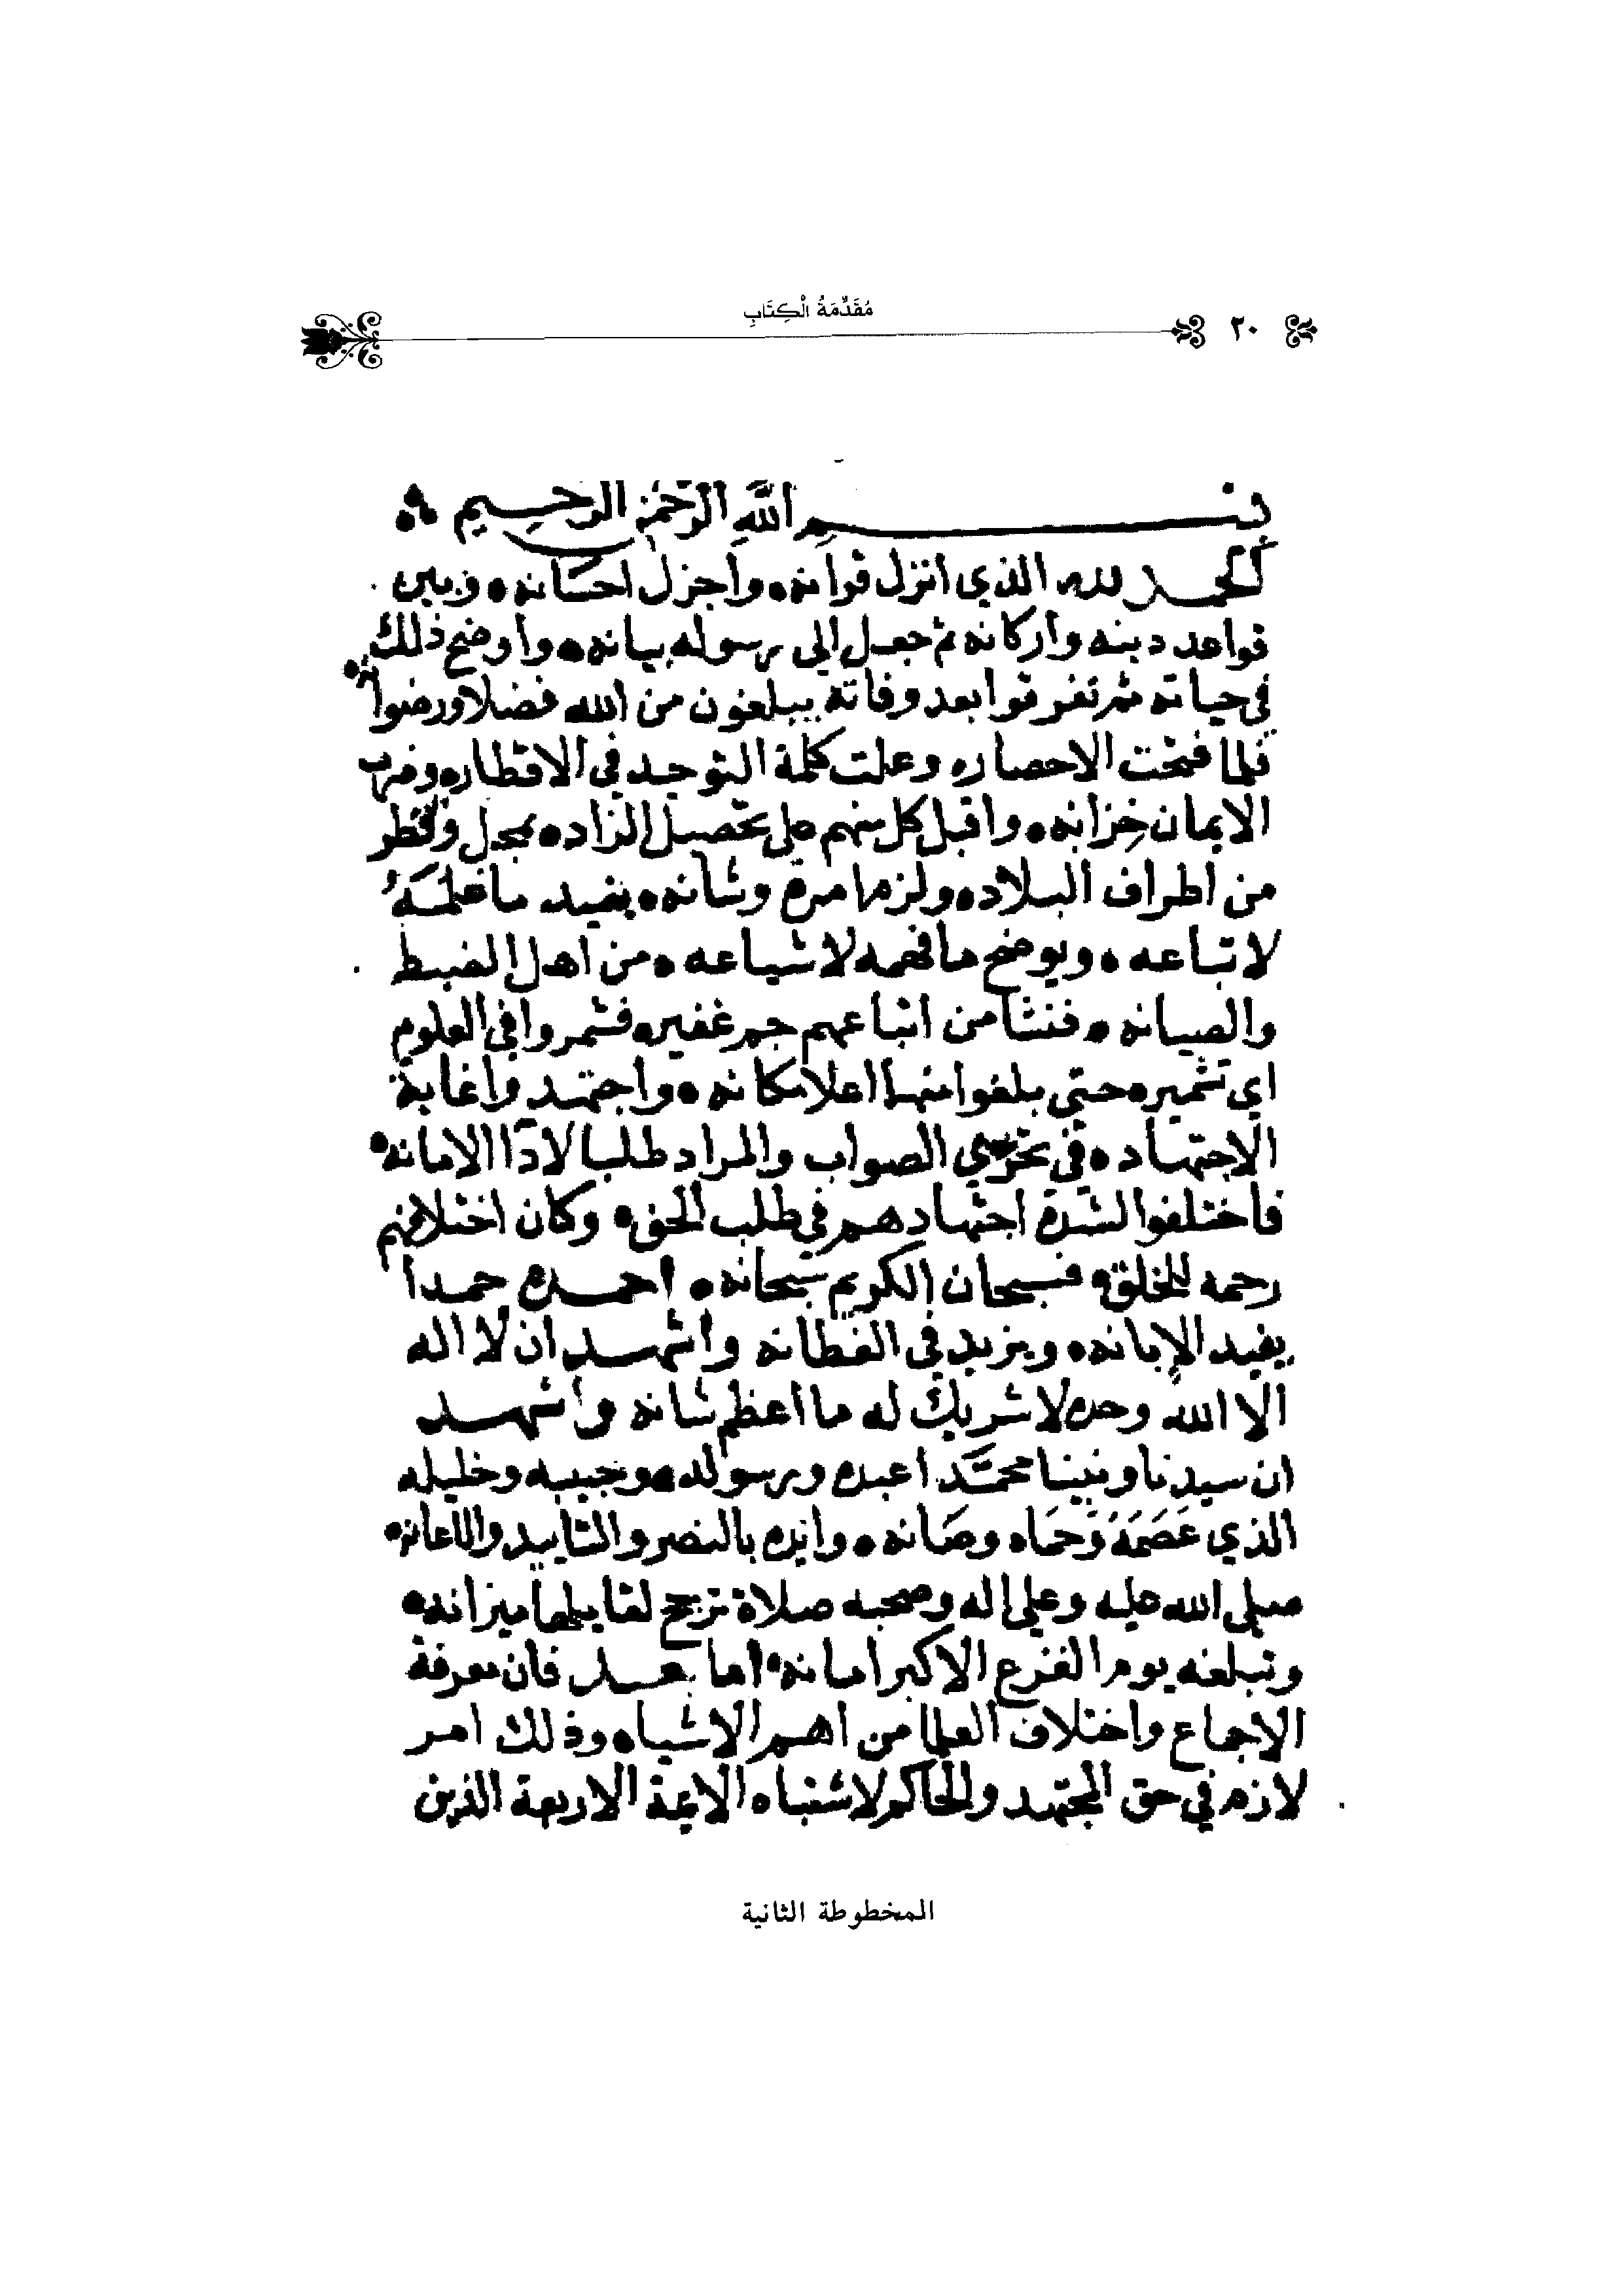 مُقَدِّمَةُ الْكِتَابِ
٢٠
بسم اللَّهِ الرَّحْمٰنِ الرَّحِيمِ
الحمد لله الذي انزل قرآنه واجزل احسَانه وبين
قواعد دينه واركانه ثم جعل الى رسوله بيانه وأوضح ذلك
في حياته ثم تفرقوا بعد وفاته يبتغون من الله فضلا ورضوانه
فلما فتحت الامصار وعلت كلمة التوحيد في الاقطار وضرب
الايمان جِرَانه واقبل كل منهم على تحصيل الزاد بمحل وقطر
من اطراف البلاد ولزم امره وشانه يفيد ما علمَهُ
لاتباعه ويوضح ما فهمه لاشياعه من اهل الضبط
والصيانه فنشأ من اتباعهم جم غفير فشمروا في العلوم
اي تشمير حتى بلغوا منها اعلا مكانه واجتهدوا غاية
الاجتهاد في تحري الصواب والمراد طلبا لادآ الامانه
فاختلفوا لشدة اجتهادهم في طلب الحق وكان اختلافهم
رحمه للخلق فسبحان الكريم سبحانه احمده حمدا
يفيد الإبانه ويزيد في الفطانه واشهد ان لا اله
الا الله وحده لا شريك له ما اعظم شانه واشهد
ان سيدنا ونبينا محمَّدا عبده ورسوله وحبيبه وخليله
الذي عَصَمَهُ وَحَمَاه وصَانه وايده بالنصر والتاييد والاعانه
صلى الله عليه وعلى اله وصحبه صلاة ترجح لقايلها ميزانه
وتبلغه يوم الفزع الاكبر امانه اما بعد فان معرفة
الاجماع واختلاف العلما من اهم الاشياء وذلك امر
لازم في حق المجتهد والحاكم لاشتباه الايمة الاربعة الذين
المخطوطة الثانية